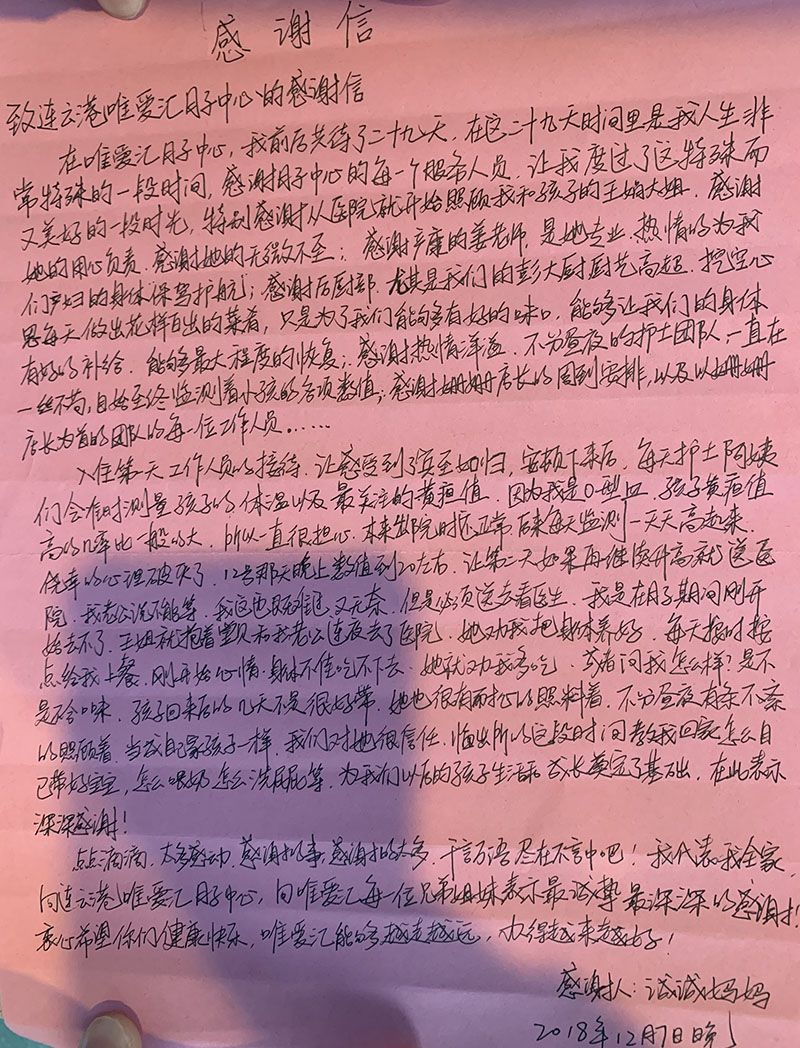 感谢信
致连云港唯爱汇月子中心的感谢信
在唯爱汇月子中心，我前后共待了二十九天，在这二十九天时间里是我人生非
常特殊的一段时间，感谢月子中心的每一个服务人员，让我度过了这特殊而
又美好的一段时光，特别感谢从医院就开始照顾我和孩子的王娟大姐，感谢
她的用心负责，感谢她的无微不至；感谢产康的姜老师，是她专业、热情的为我
们产妇的身体保驾护航；感谢后厨部，尤其是我们的彭大厨厨艺高超，挖空心
思每天做出花样百出的菜肴，只是为了我们能够有好的味口，能够让我们的身体
有好的补给，能够最大程度的恢复；感谢热情洋溢、不分昼夜的护士团队，一直在
一丝不苟，自始至终监测着小孩的各项数值；感谢姗姗店长的周到安排，以及以姗姗
店长为首的团队的每一位工作人员。……
入住第一天工作人员的接待，让感受到了宾至如归，安顿下来后，每天护士阿姨
们会准时测量孩子的体温以及最关注的黄疸值，因为我是O型血，孩子黄疸值
高的几率比一般的大，所以一直很担心，本来出院时还正常，后来每天监测一天天高起来，
侥幸的心理破灭了，12号那天晚上数值到20左右，让第二天如果再继续升高就送医
院，我老公说不能等，我这也既难过又无奈，但是必须送去看医生，我是在月子期间刚开
始去不了，王姐就抱着宝贝和我老公连夜去了医院，她劝我把身体养好，每天按时按
点给我上餐，刚开始心情、身体不佳吃不下去，她就劝我多吃，或者问我怎么样？是不
是不合口味，孩子回来后的几天不是很好带，她也很有耐心的照料着，不分昼夜有条不紊
的照顾着，当成自己家孩子一样，我们对她很信任，临出所的这段时间教我回家怎么自
己带好宝宝，怎么喂奶怎么洗屁屁等，为我们以后的孩子生活和成长奠定了基础，在此表示
深深感谢！
点点滴滴，太多感动，感谢的事、感谢的太多，千言万语尽在不言中吧！我代表我全家，
向连云港唯爱汇月子中心，向唯爱汇每一位兄弟姐妹表示最诚挚最深深的感谢！
衷心希望你们健康快乐，唯爱汇能够越走越远，办得越来越好！
感谢人：诚诚妈妈
2018年12月7日晚